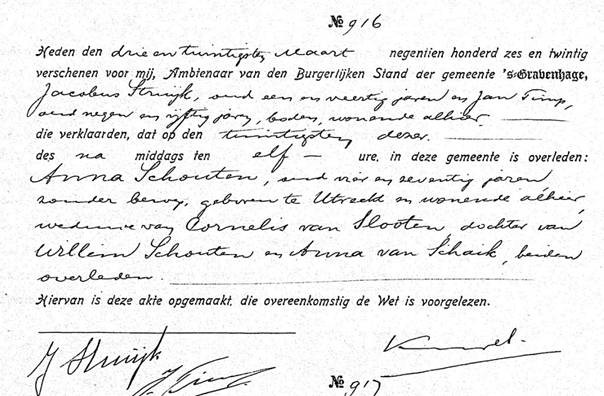 No 916
Heden den drie en twintigsten Maart negentien honderd zes en twintig
verschenen voor mij, Ambtenaar van den Burgerlijken Stand der gemeente 's-Gravenhage,
Jacobus Struijk, oud een en veertig jaren en Jan Timp,
oud negen en vijftig jaren, boden, wonende alhier.
die verklaarden, dat op den twintigsten dezer.
des na middags ten elf ure, in deze gemeente is overleden:
Anna Schouten, oud vier en zeventig jaren
zonder beroep, geboren te Utrecht en wonende alhier,
weduwe van Cornelis van Slooten, dochter van
Willem Schouten en Anna van Schaik, beiden
overleden.
Hiervan is deze akte opgemaakt, die overeenkomstig de Wet is voorgelezen.
J Struijk
No 917